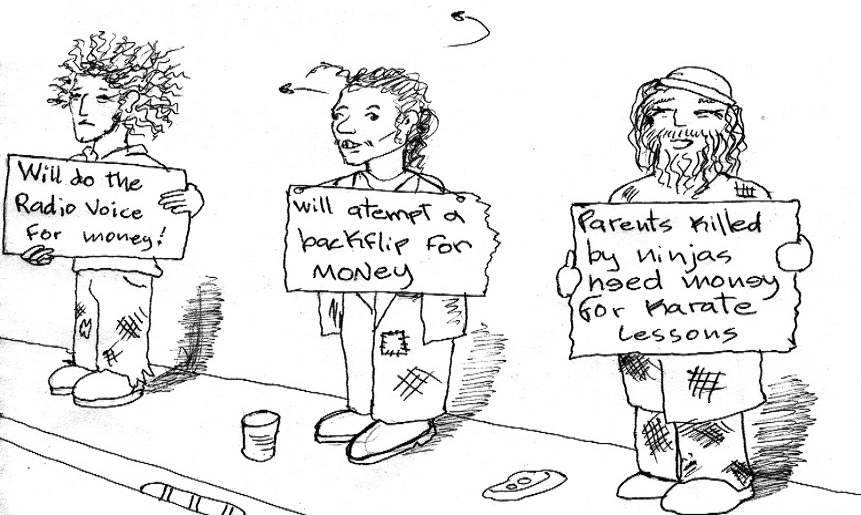 Will do the
Radio Voice
For money!
Will atempt a
backflip For
MONEY
Parents Killed
by ninjas
need money
For Karate
Lessons